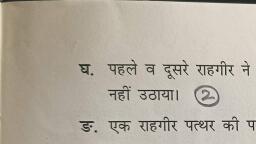 घ. पहले व दूसरे राहगीर ने
नहीं उठाया। 2
ङ. एक राहगीर पत्थर की